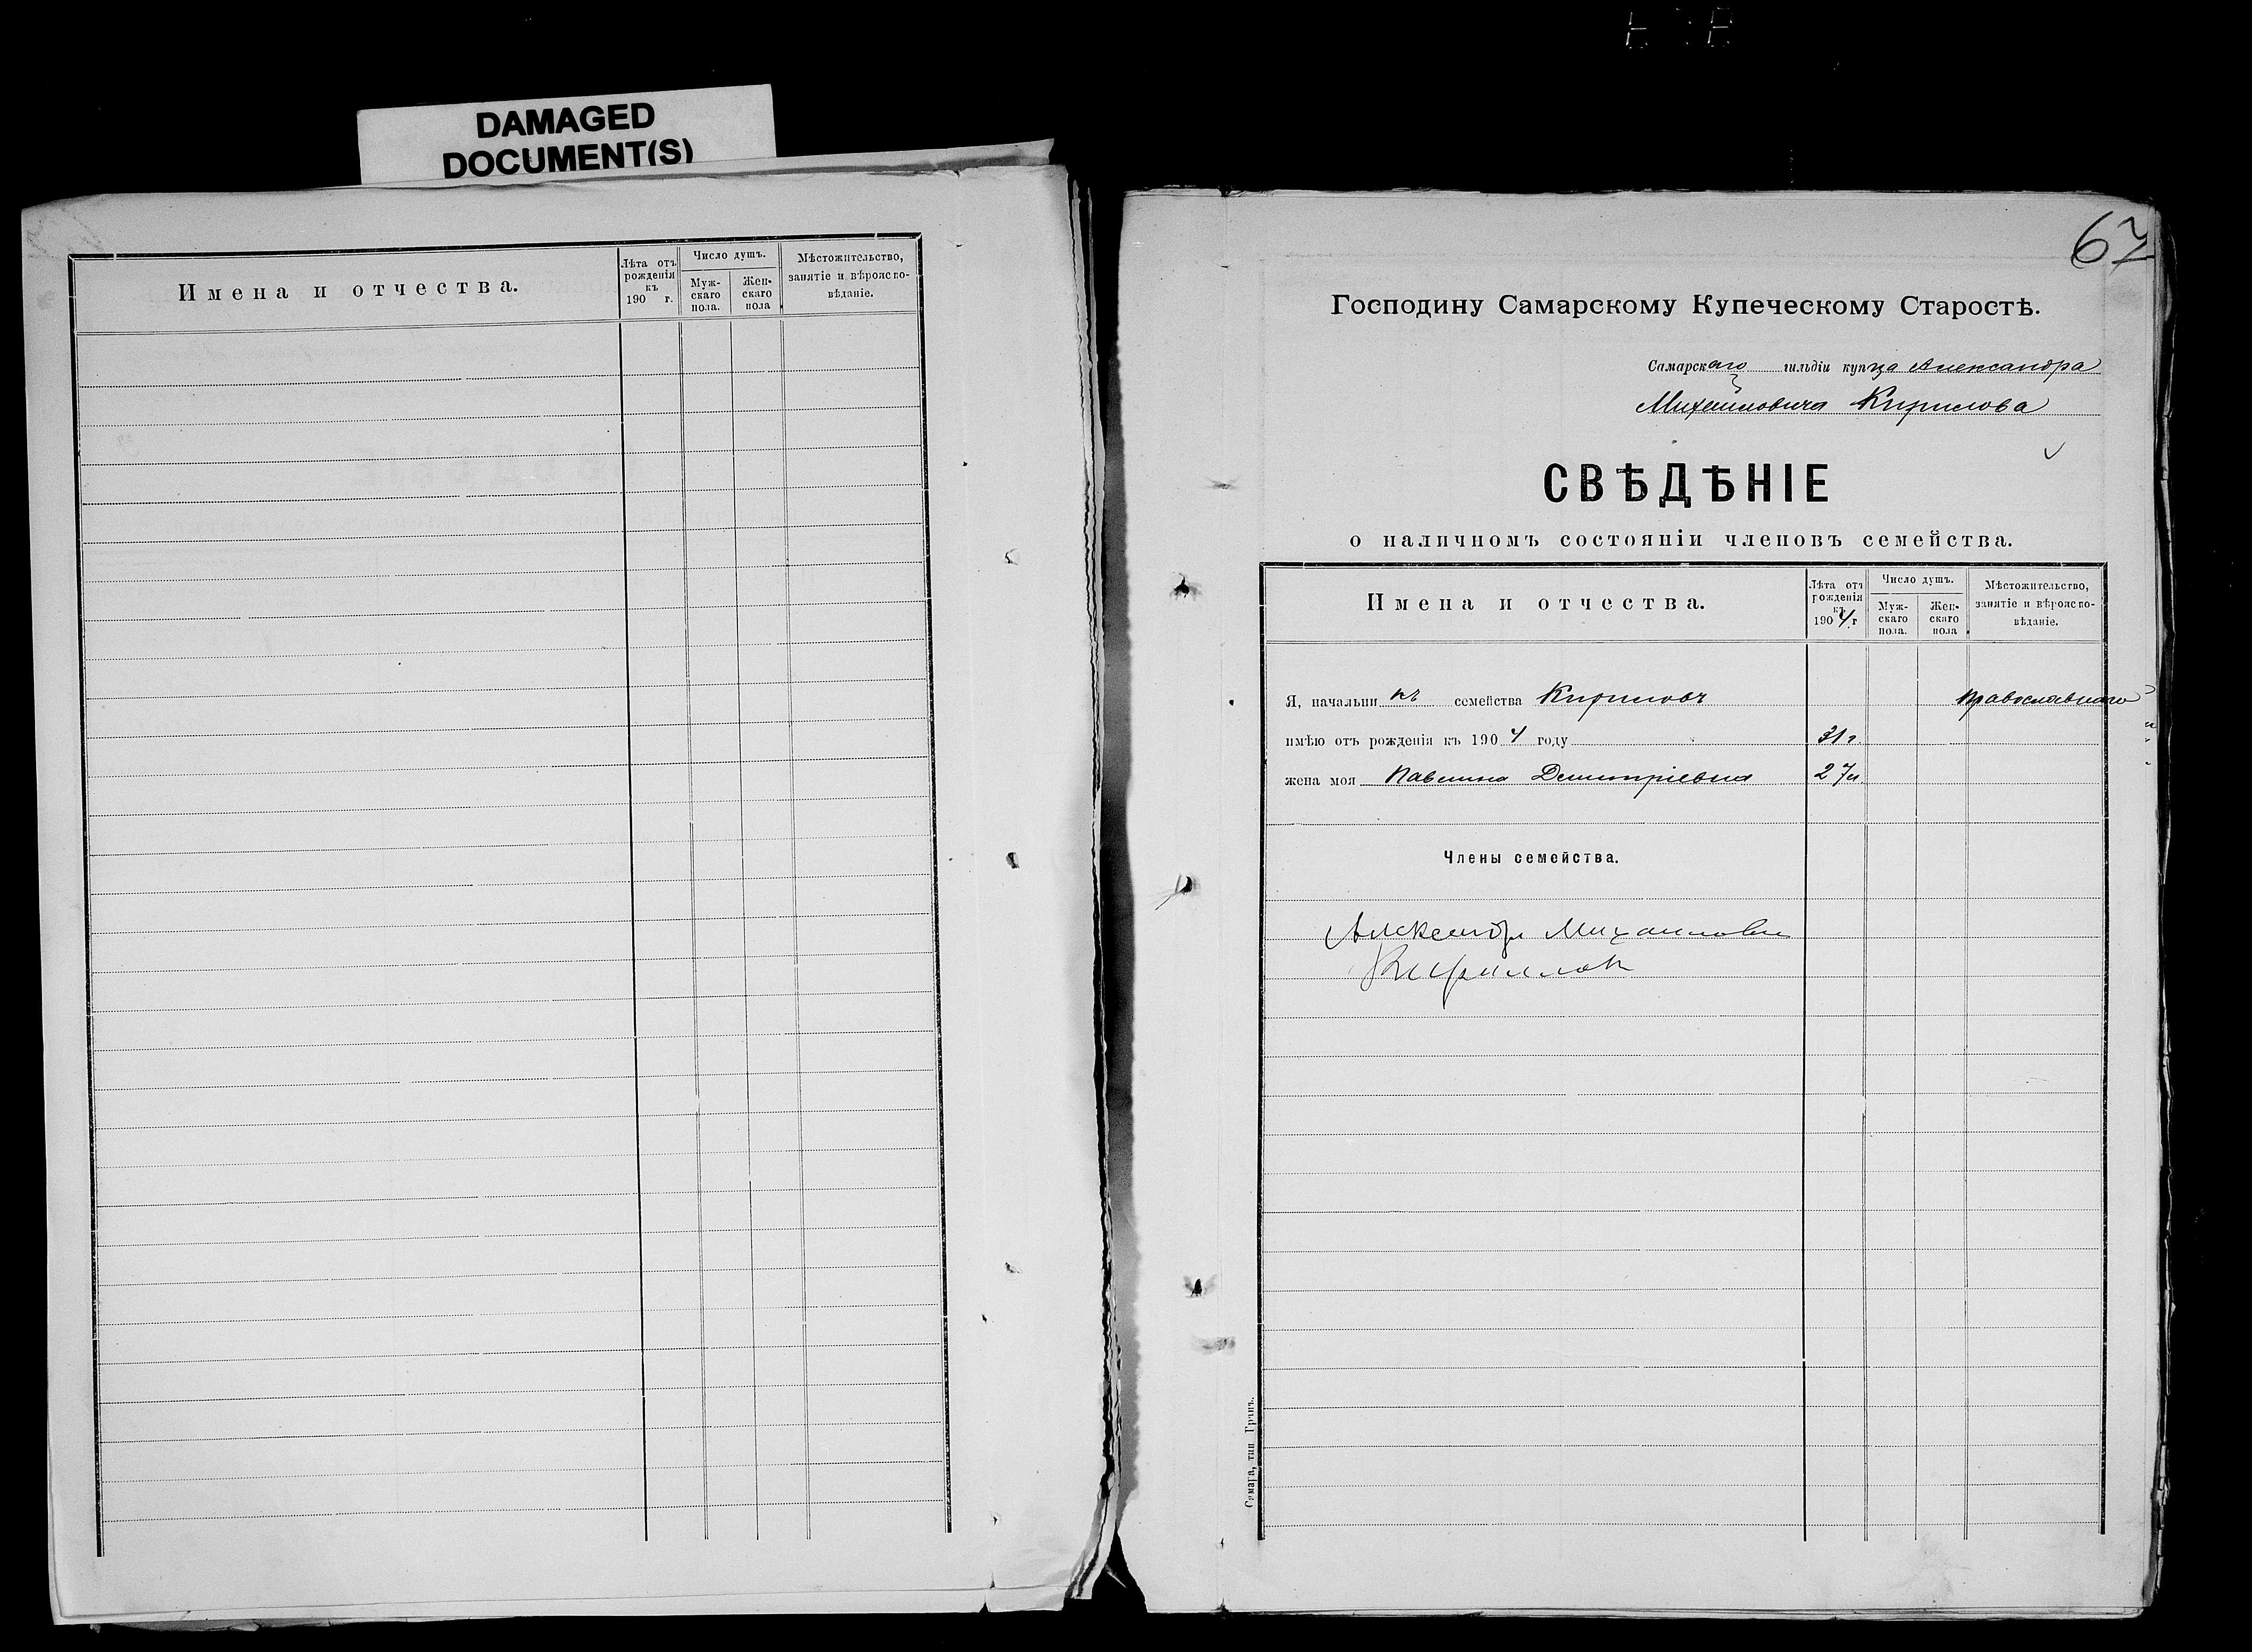 DAMAGED
DOCUMENT(S)
Имена и отчества.
Лѣта отъ рожденія къ 190 г.
Число душъ.
Мужскаго пола.
Женскаго пола
Мѣстожительство, занятіе и вѣроисповѣданіе.
67
Господину Самарскому Купеческому Старостѣ.
Самарскаго гильдіи купца Александра
Михайловича Кирилова
СВѢДѢНІЕ
о наличномъ состояніи членовъ семейства.
Имена и отчества.
Лѣта отъ рожденія къ 1904 г
Число душъ.
Мужскаго пола.
Женскаго пола
Мѣстожительство, занятіе и вѣроисповѣданіе.
Я, начальникъ семейства Кириловъ православнаго
имѣю отъ рожденія къ 1904 году 31 г.
жена моя Павлина Димитріевна 27 л.
Члены семейства.
Александр Михаилович
Кириллов
Самара, тип. Гранъ.